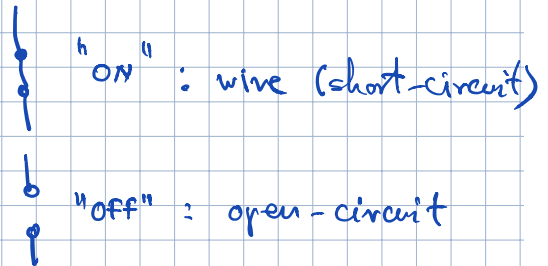 "ON" : wire (short-circuit)
"OFF" : open-circuit